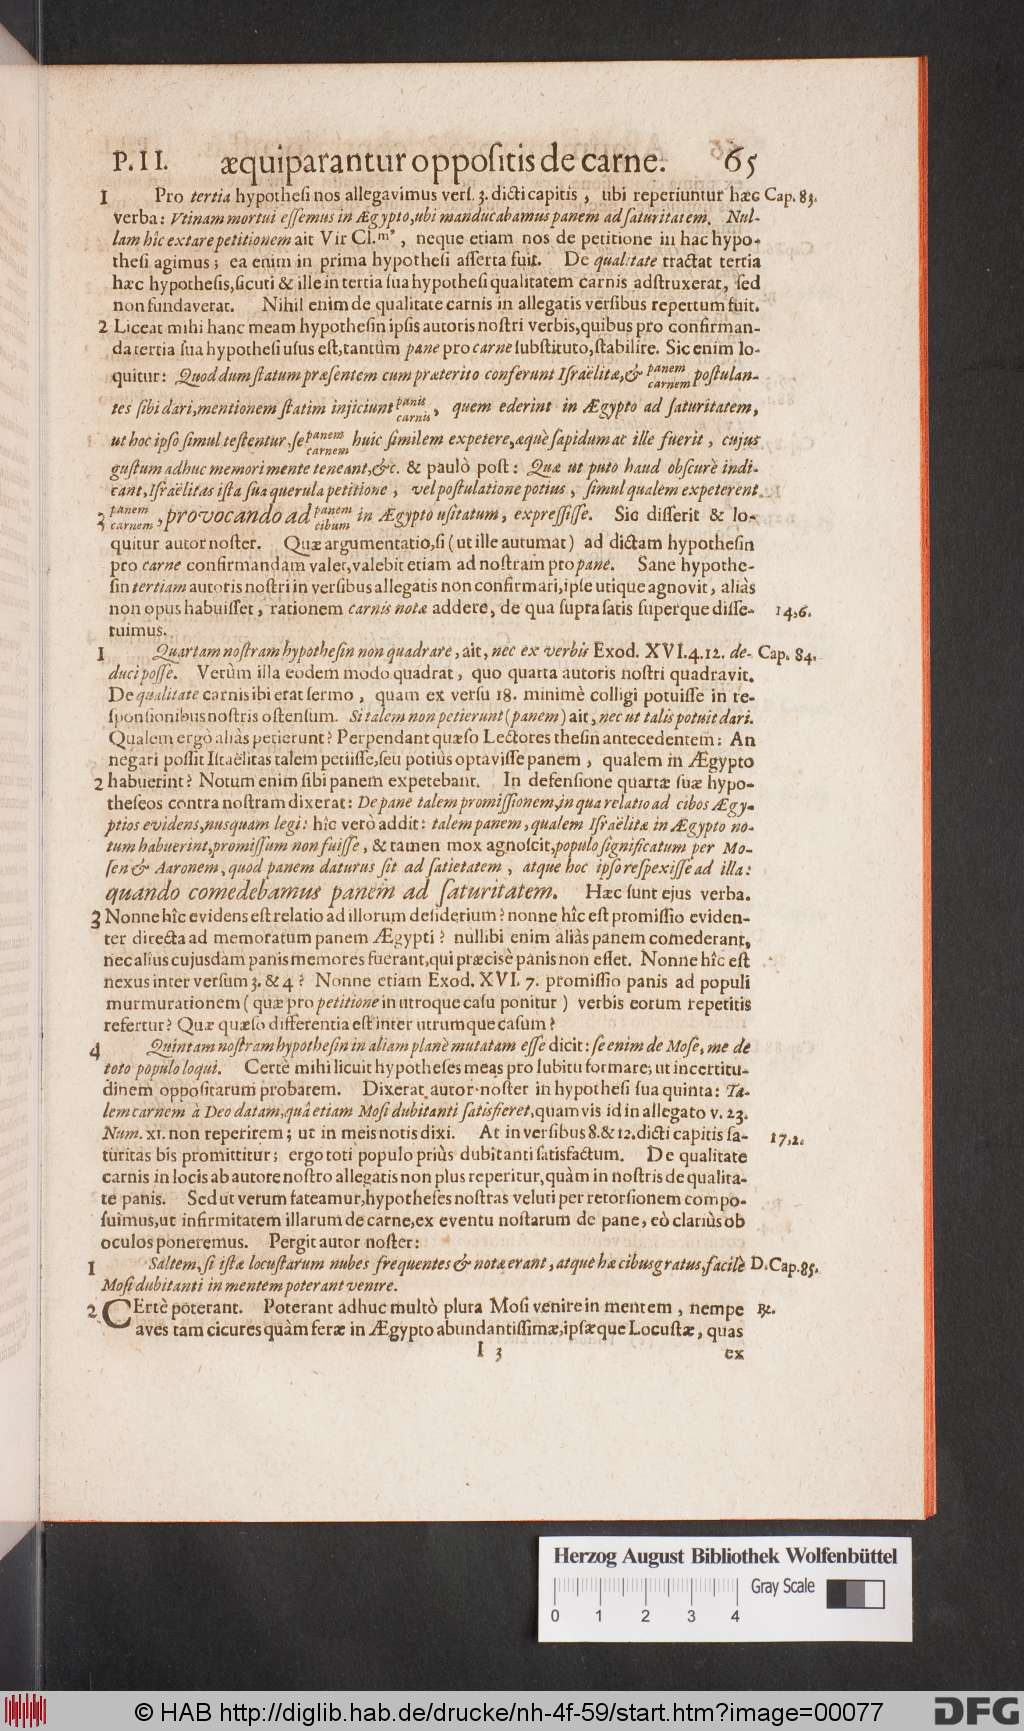 P. II. æquiparantur oppositis de carne. 65
1 Pro tertia hypothesi nos allegavimus vers. 3. dicti capitis, ubi reperiuntur hæc Cap. 83.
verba: Vtinam mortui essemus in Ægypto, ubi manducabamus panem ad saturitatem. Nul-
lam hîc extare petitionem ait Vir Cl.mꝰ, neque etiam nos de petitione in hac hypo-
thesi agimus; ea enim in prima hypothesi asserta fuit. De qualitate tractat tertia
hæc hypothesis, sicuti & ille in tertia sua hypothesi qualitatem carnis adstruxerat, sed
non fundaverat. Nihil enim de qualitate carnis in allegatis versibus repertum fuit.
2 Liceat mihi hanc meam hypothesin ipsis autoris nostri verbis, quibus pro confirman-
da tertia sua hypothesi usus est, tantùm pane pro carne substituto, stabilire. Sic enim lo-
quitur: Quod dum statum præsentem cum præterito conferunt Israëlitæ, & panem carnem postulan-
tes sibi dari, mentionem statim injiciunt panis carnis, quem ederint in Ægypto ad saturitatem,
ut hoc ipso simul testentur, se panem carnem huic similem expetere, æquè sapidum ac ille fuerit, cujus
gustum adhuc memori mente teneant, &c. & paulò post: Quæ ut puto haud obscurè indi-
cant, Israëlitas ista sua querula petitione, vel postulatione potius, simul qualem expeterent
3 panem carnem, provocando ad panem cibum in Ægypto usitatum, expressisse. Sic disserit & lo-
quitur autor noster. Quæ argumentatio, si (ut ille autumat) ad dictam hypothesin
pro carne confirmandam valet, valebit etiam ad nostram pro pane. Sane hypothe-
sin tertiam autoris nostri in versibus allegatis non confirmari, ipse utique agnovit, aliàs
non opus habuisset, rationem carnis notæ addere, de qua supra satis superque disse- 14,6.
ruimus.
1 Quartam nostram hypothesin non quadrare, ait, nec ex verbis Exod. XVI. 4. 12. de- Cap. 84.
duci posse. Verùm illa eodem modo quadrat, quo quarta autoris nostri quadravit.
De qualitate carnis ibi erat sermo, quam ex versu 18. minimè colligi potuisse in re-
sponsionibus nostris ostensum. Si talem non petierunt (panem) ait, nec ut talis potuit dari.
Qualem ergò aliàs petierunt? Perpendant quæso Lectores thesin antecedentem: An
negari possit Israëlitas talem petiisse, seu potiùs optavisse panem, qualem in Ægypto
2 habuerint? Notum enim sibi panem expetebant. In defensione quartæ suæ hypo-
theseos contra nostram dixerat: De pane talem promissionem, in qua relatio ad cibos Ægy-
ptios evidens, nusquam legi: hîc verò addit: talem panem, qualem Israëlitæ in Ægypto no-
tum habuerint, promissum non fuisse, & tamen mox agnoscit, populo significatum per Mo-
sen & Aaronem, quod panem daturus sit ad satietatem, atque hoc ipso respexisse ad illa:
quando comedebamus panem ad saturitatem. Hæc sunt ejus verba.
3 Nonne hîc evidens est relatio ad illorum desiderium? nonne hîc est promissio eviden-
ter directa ad memoratum panem Ægypti? nullibi enim aliàs panem comederant,
nec alius cujusdam panis memores fuerant, qui præcisè panis non esset. Nonne hîc est
nexus inter versum 3. & 4? Nonne etiam Exod. XVI. 7. promissio panis ad populi
murmurationem (quæ pro petitione in utroque casu ponitur) verbis eorum repetitis
refertur? Quæ quæso differentia est inter utrumque casum?
4 Quintam nostram hypothesin in aliam planè mutatam esse dicit: se enim de Mose, me de
toto populo loqui. Certè mihi licuit hypotheses meas pro lubitu formare; ut incertitu-
dinem oppositarum probarem. Dixerat autor noster in hypothesi sua quinta: Ta-
lem carnem à Deo datam, quâ etiam Mosi dubitanti satisfieret, quamvis id in allegato v. 23.
Num. XI. non reperirem; ut in meis notis dixi. At in versibus 8. & 12. dicti capitis sa- 17,2.
turitas bis promittitur; ergo toti populo priùs dubitanti satisfactum. De qualitate
carnis in locis ab autore nostro allegatis non plus reperitur, quàm in nostris de qualita-
te panis. Sed ut verum fateamur, hypotheses nostras veluti per retorsionem compo-
suimus, ut infirmitatem illarum de carne, ex eventu nostarum de pane, eò clariùs ob
oculos poneremus. Pergit autor noster:
1 Saltem, si istæ locustarum nubes frequentes & notæ erant, atque hæ cibus gratus, facilè D. Cap. 85.
Mosi dubitanti in mentem poterant venire.
2 CErtè poterant. Poterant adhuc multò plura Mosi venire in mentem, nempe ℞.
aves tam cicures quàm feræ in Ægypto abundantissimæ, ipsæque Locustæ, quas
I 3 ex
Herzog August Bibliothek Wolfenbüttel
Gray Scale
0 1 2 3 4
© HAB http://diglib.hab.de/drucke/nh-4f-59/start.htm?image=00077 DFG